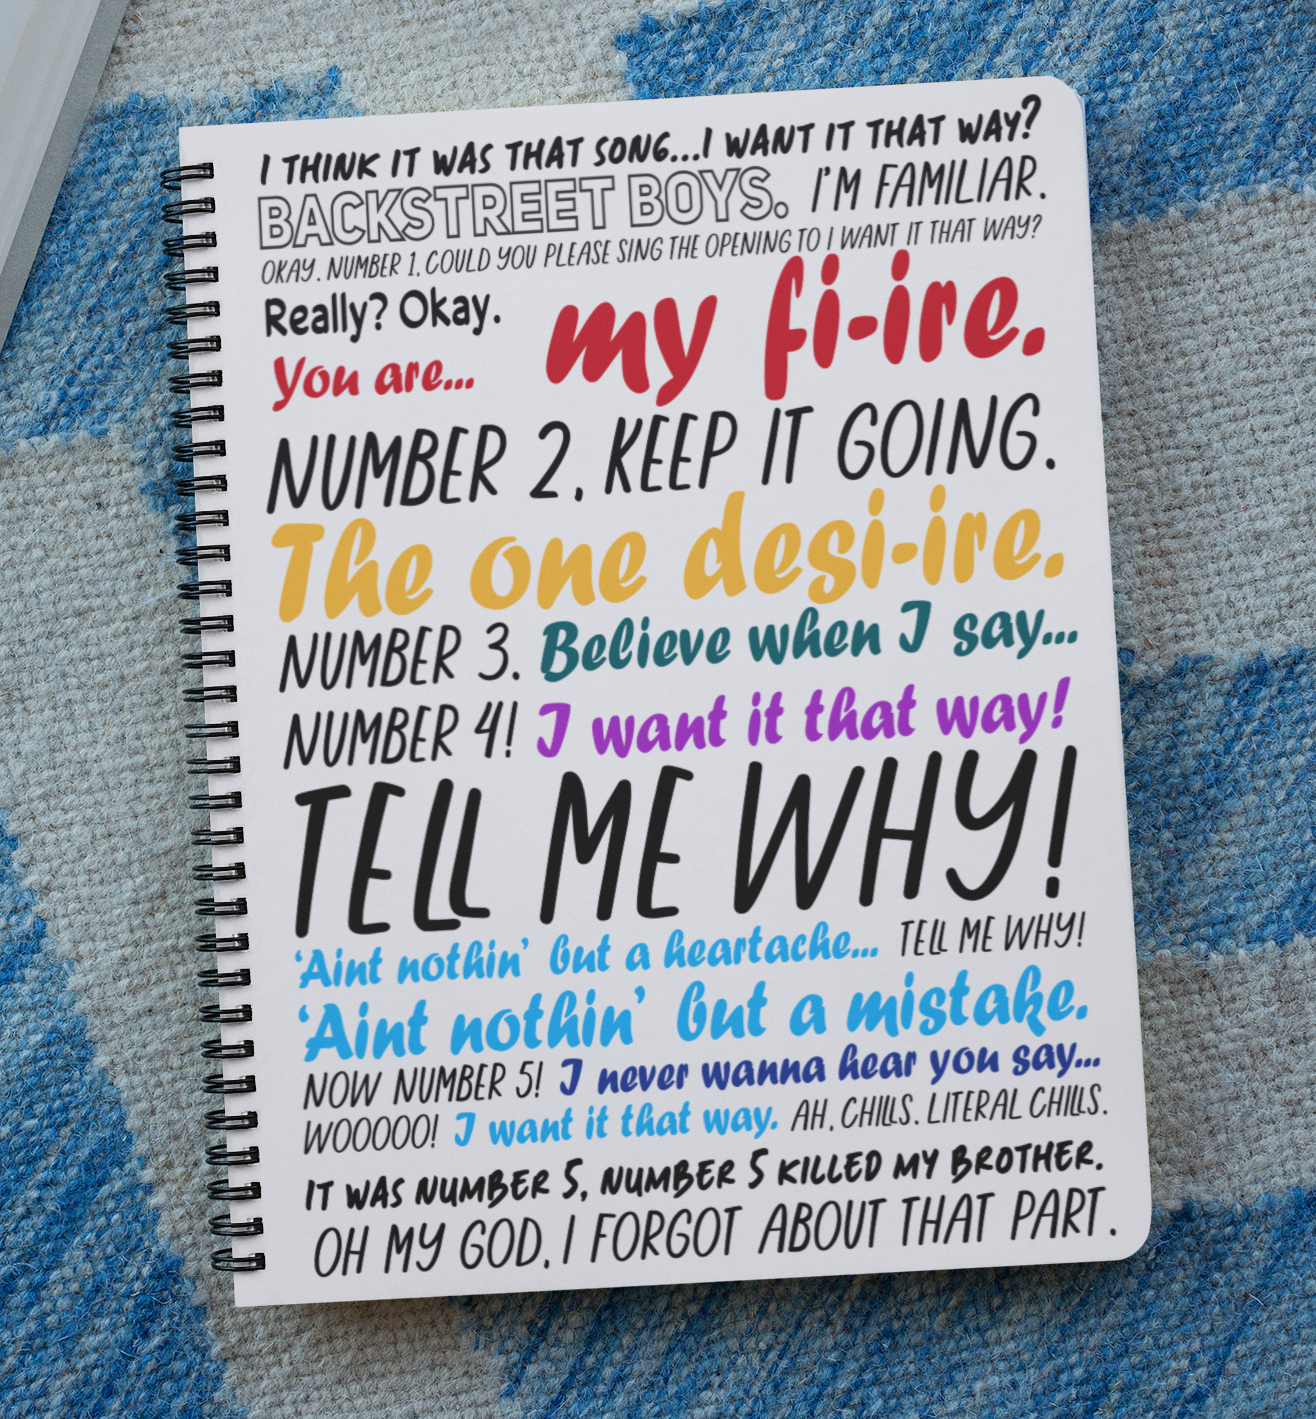 I THINK IT WAS THAT SONG...I WANT IT THAT WAY?
BACKSTREET BOYS. I'M FAMILIAR.
OKAY. NUMBER 1, COULD YOU PLEASE SING THE OPENING TO I WANT IT THAT WAY?
Really? Okay.
You are... my fi-ire.
NUMBER 2, KEEP IT GOING.
The one desi-ire.
NUMBER 3. Believe when I say...
NUMBER 4! I want it that way!
TELL ME WHY!
'Aint nothin' but a heartache... TELL ME WHY!
'Aint nothin' but a mistake.
NOW NUMBER 5! I never wanna hear you say...
WOOOOO! I want it that way. AH, CHILLS. LITERAL CHILLS.
IT WAS NUMBER 5, NUMBER 5 KILLED MY BROTHER.
OH MY GOD, I FORGOT ABOUT THAT PART.